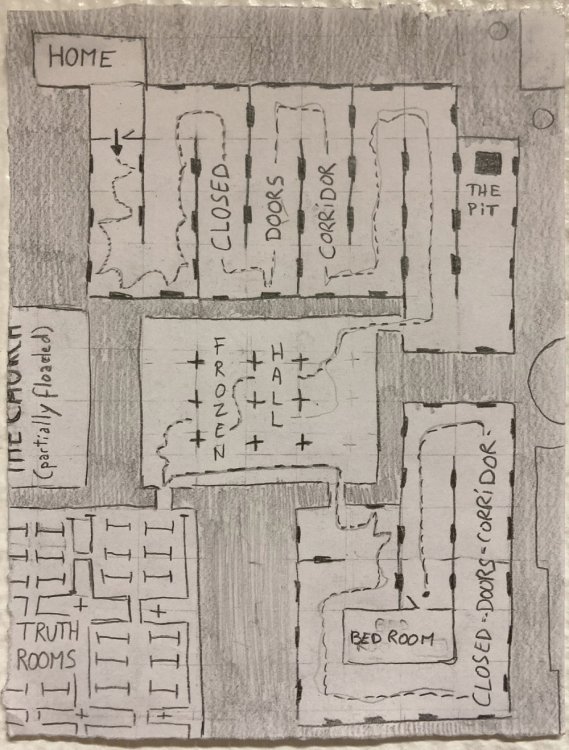 HOME
CLOSED
DOORS
CORRIDOR
THE
PIT
FROZEN
HALL
THE CHURCH
(partially flooded)
BED ROOM
CLOSED-DOORS-CORRIDOR-
TRUTH
ROOMS